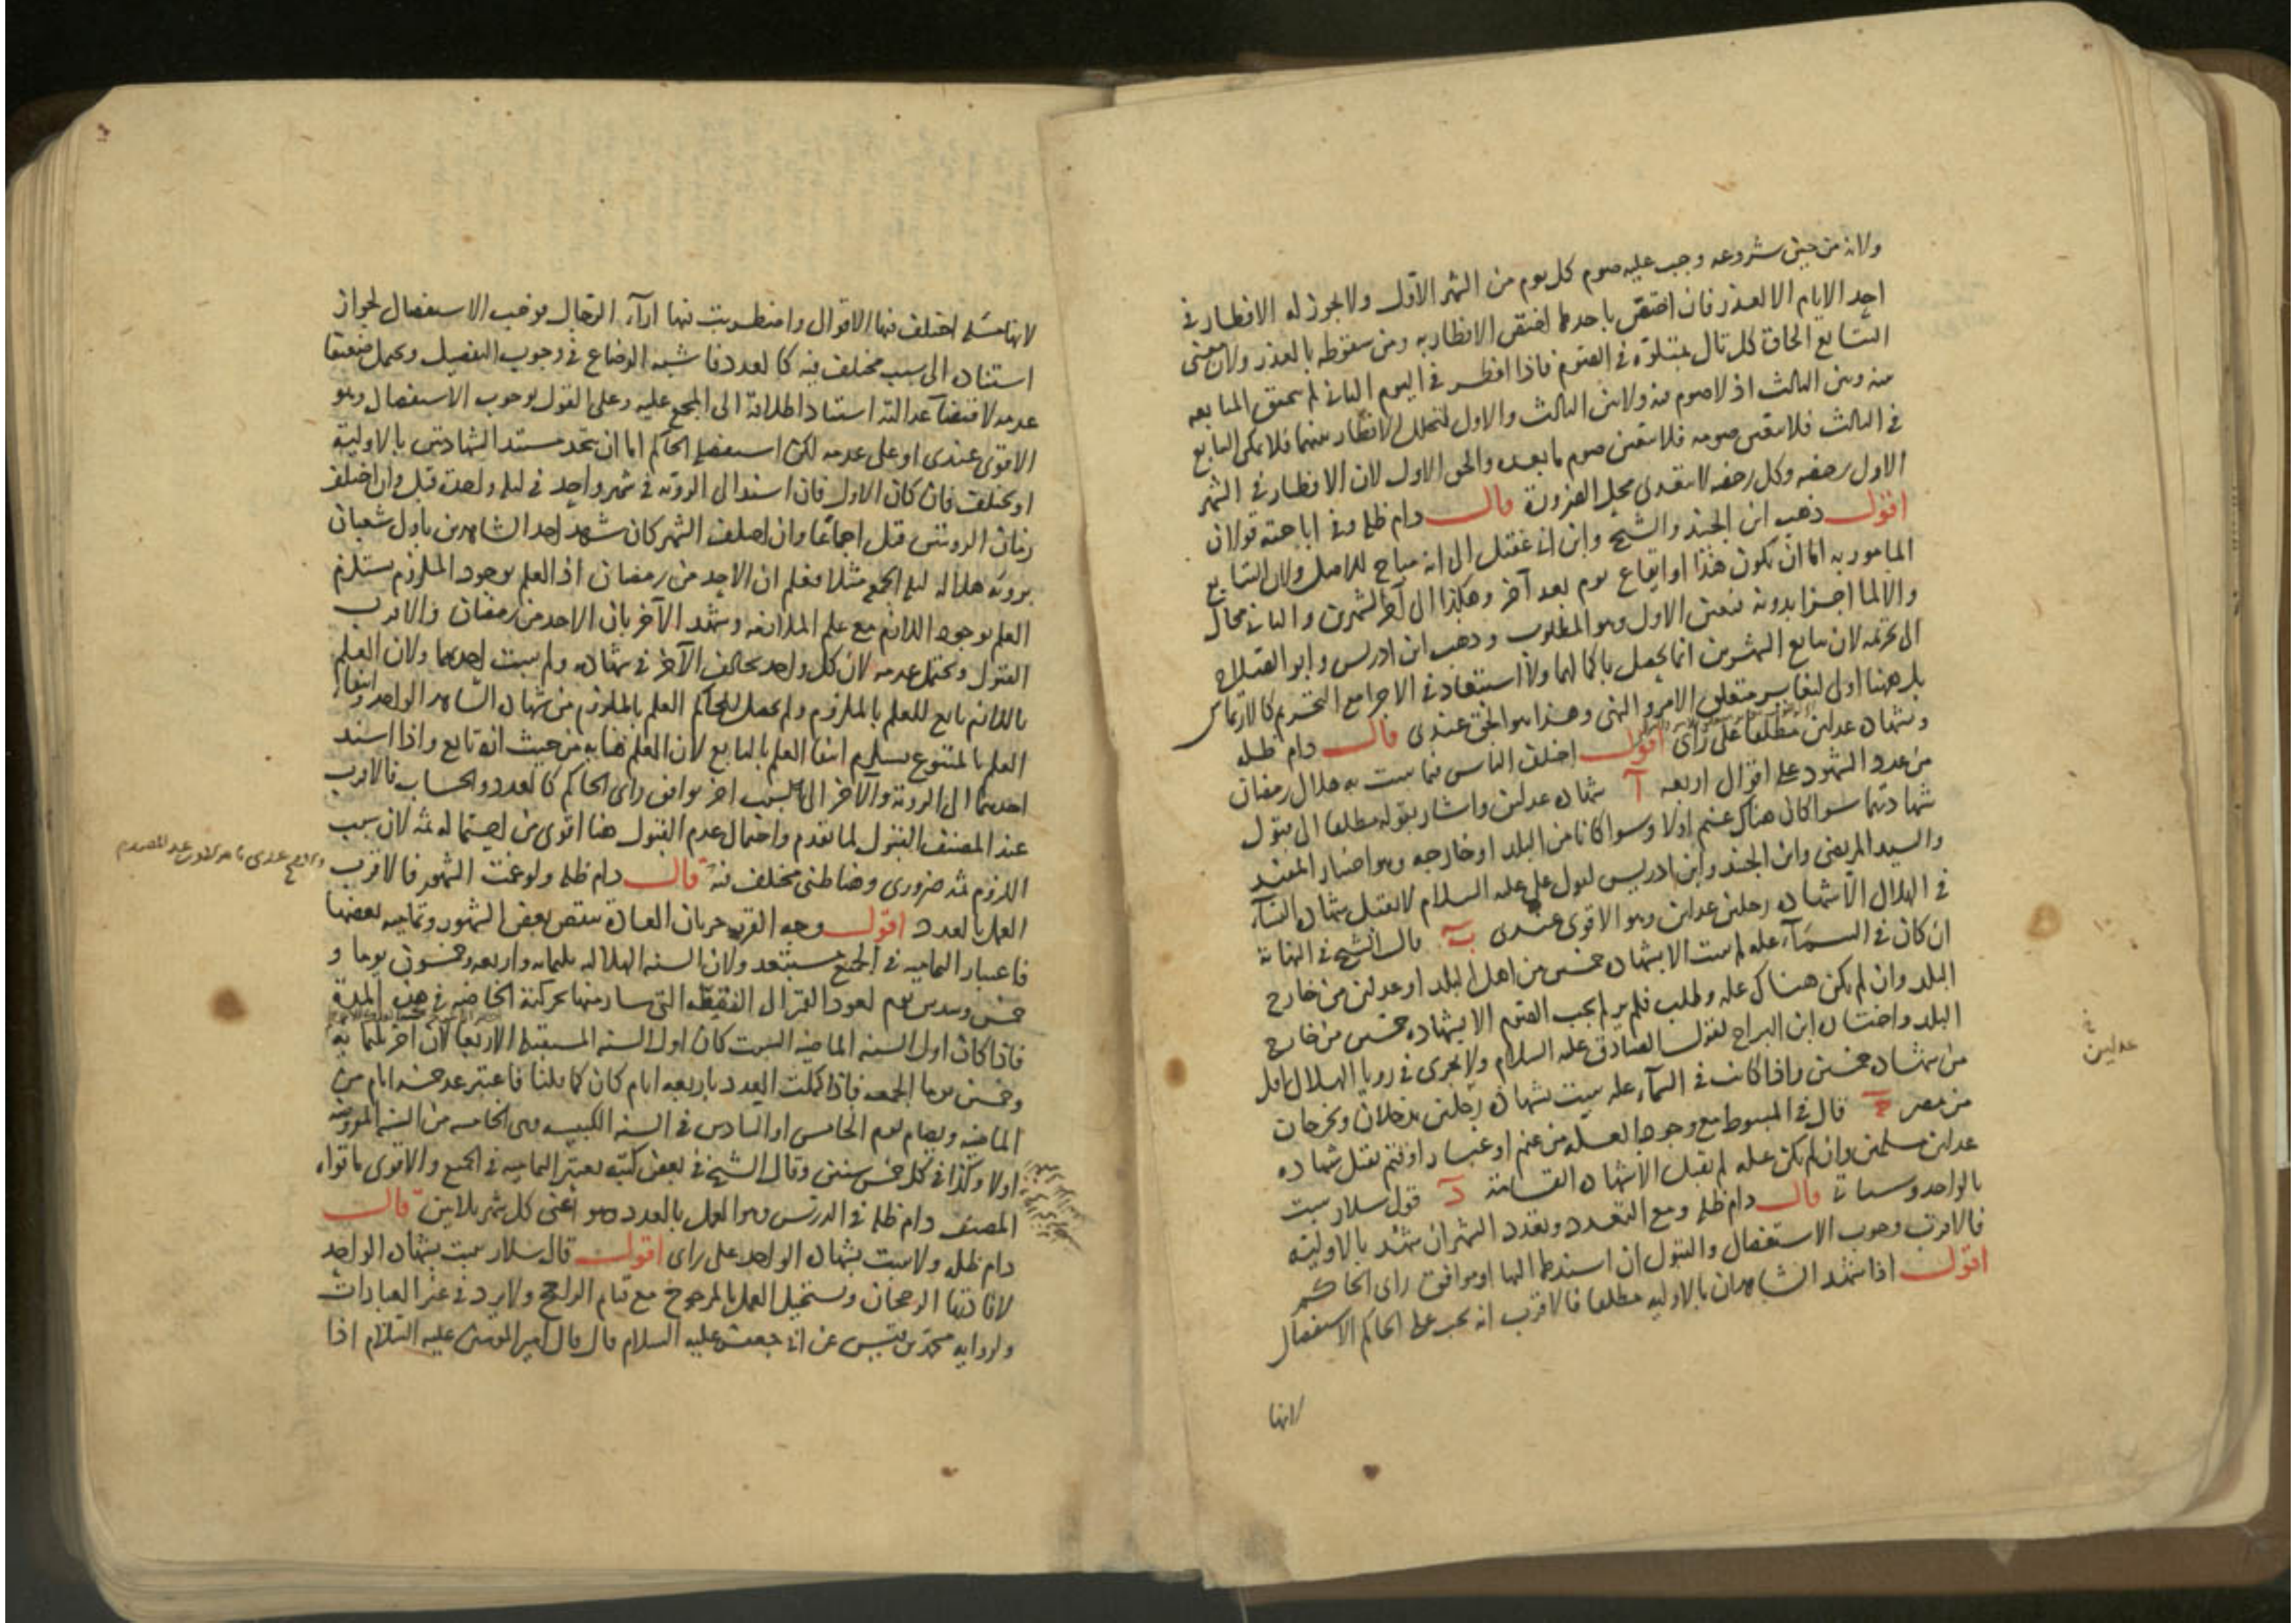 ولانه من حين شروعه وجب عليه صوم كل يوم من الشهر الاول ولا يجوز له الافطار في
احد الايام الا لعذر فان اختص باحدها اختص الافطار به ومن سقوطه بالعذر ولان معنى
التتابع الحاق كل تال بمتلوه في الصوم فاذا افطر في اليوم الثاني لم يتحقق المتابعه
منه وبين الثالث اذ لا صوم فيه ولا بين الثالث والاول لتخلل الافطار بينهما فلا يمكن التتابع
في الثالث فلا يتعين صومه فلا يتعين صوم ما بعده والحق الاول لان الافطار في الشهر
الاول رخصه وكل رخصه لا يتعدى محل الضرورة قال دام ظله وفي اباحته قولان
اقول ذهب ابن الجنيد والشيخ وابن ابي عقيل الى انه مباح للاصل ولان التتابع
المامور به اما ان يكون هذا او ايقاع يوم بعد آخر وهكذا الى آخر الشهرين والثاني محال
والا لما اجزا بدونه فتعين الاول وهو المطلوب وذهب ابن ادريس وابو الصلاح
الى تحريمه لان تتابع الشهرين انما يحصل باكمالهما ولا استبعاد في الاجزا مع التحريم كالارتماس
بل ههنا اولى لتغاير متعلق الامر والنهى وهذا هو الحق عندى قال دام ظله
وبشهاده عدلين مطلقا على راى اقول اختلف الناس فيما يثبت به هلال رمضان
من عدد الشهود على اقوال اربعه آ شهاده عدلين واشار بقوله مطلقا الى قبول
شهادتهما سوا كان هناك غيم اولا وسوا كانا من البلد او خارجه وهو اختيار المفيد
والسيد المرتضى وابن الجنيد وابن ادريس لقول على عليه السلام لا يقبل شهاده النساء
في الهلال الا شهاده رجلين عدلين وهو الاقوى عندى ب قال الشيخ في النهاية
ان كان في السماء عله لم يثبت الا بشهاده خمسين من اهل البلد او عدلين من خارج
البلد وان لم يكن هناك عله وطلب فلم ير لم يجب الصوم الا بشهاده خمسين من خارج
البلد واختاره ابن البراج لقول الصادق عليه السلام ولا يجزى في رويا الهلال اقل
من شهاده خمسين واذا كانت في السماء عله يثبت بشهاده رجلين يدخلان ويخرجان
من مصر ج قال في المبسوط مع وجود العله من غيم او غبار او قتم يقبل شهاده
عدلين مسلمين وان لم يكن عله لم يقبل الا شهاده القسامة د قول سلار يثبت
بالواحد وسياتي قال دام ظله ومع التعدد وتعدد الشهر ان شهد بالاوليه
فالاقرب وجوب الاستفصال والقبول ان اسندها اليها او موافق راى الحاكم
اقول اذا شهد الشاهدان بالاوليه مطلقا فالاقرب انه يجب على الحاكم الاستفصال
لانها
في
عدلين
لانها مسئله اختلف فيها الاقوال واضطربت فيها اراء الرجال فوجب الاستفصال لجواز
استناده الى سبب مختلف فيه كالعدد فاشبه الرضاع في وجوب التفصيل ويحتمل ضعيفا
عدمه لاقتضاء عدالته استناد اطلاقه الى المجمع عليه وعلى القول بوجوب الاستفصال وهو
الاقوى عندى او على عدمه لكن استفصل الحاكم اما ان يتحد مستند الشهادتين بالاولية
او يختلف فان كان الاول فان اسندا الى الروية في شهر واحد في ليله واحدة قبل وان اختلف
زمان الرويتين قبل اجماعا وان اختلف الشهر كان شهد احد الشاهدين باول شعبان
بروية هلاله ليله الجمعه مثلا فعلم ان الاحد من رمضان اذ العلم بوجود الملزوم يستلزم
العلم بوجود اللازم مع علم الملازمه وشهد الآخر بان الاحد من رمضان فالاقرب
القبول ويحتمل عدمه لان كل واحد يخالف الآخر في شهاده ولم يثبت احدهما ولان العلم
باللازم تابع للعلم بالملزوم ولم يحصل للحاكم العلم بالملزوم من شهادة الشاهد الواحد وانتفاء
العلم بالمتبوع يستلزم انتفا العلم بالتابع لان العلم هنا به من حيث انه تابع واذا اسند
احدهما الى الروية والآخر الى سبب اخر يوافق راى الحاكم كالعدد والحساب فالاقرب
عند المصنف القبول لما تقدم واحتمال عدم القبول هنا اقوى من احتماله ثمه لان سبب
اللزوم ثمه ضرورى وهنا ظنى مختلف فيه قال دام ظله ولو غمت الشهور فالاقرب
العمل بالعدد اقول وجه القرب جريان العادة بنقص بعض الشهور وتماميه بعضها
فاعتبار التماميه في الجميع مستبعد ولان السنه الهلاليه ثلثمايه واربعه وخمسون يوما و
خمس وسدس يوم لعود القمر الى النقطه التى سار منها بحركته الخاصه في هذه المدة
فاذا كان اول السنه الماضيه السبت كان اول السنه المستقبله الاربعا لان آخر ثلثمايه
وخمسين يوما الجمعه فاذا كملت العدد باربعه ايام كان كما قلنا فاعتبر عد خمسه ايام من
الماضيه ويصام يوم الخامس او السادس في السنه الكبيسه وهى الخامسه من السنه المعروفه
اولا وكذا في كل خمس سنين وقال الشيخ في بعض كتبه يعتبر التماميه في الجميع والاقوى ما قواه
المصنف دام ظله في الدرس وهو العمل بالعدد وهو اعنى كل شهر ثلاثين قال
دام ظله ولا يثبت بشهاده الواحد على راى اقول قال سلار يثبت بشهاده الواحد
لافادتها الرجحان ويستحيل العمل بالمرجوح مع قيام الراجح ولا يرد في غير العبادات
ولرواية محمد بن قيس عن ابى جعفر عليه السلام قال قال امير المومنين عليه السلام اذا